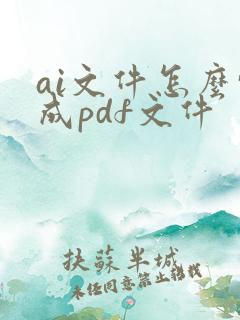 ai文件怎麼
成pdf文件
扶蘇半城
未经同意禁止转载